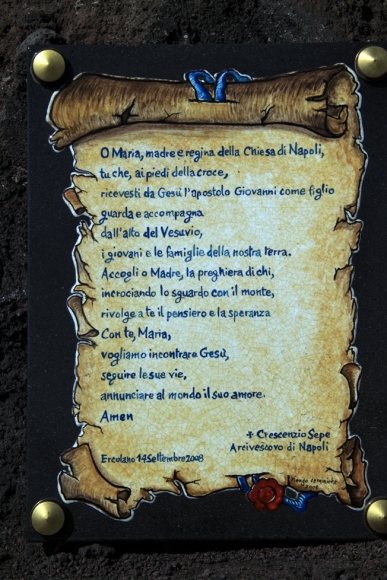 O Maria, madre e regina della Chiesa di Napoli,
tu che, ai piedi della croce,
ricevesti da Gesù l'apostolo Giovanni come figlio
guarda e accompagna
dall'alto del Vesuvio,
i giovani e le famiglie della nostra terra.
Accogli o Madre, la preghiera di chi,
incrociando lo sguardo con il monte,
rivolge a te il pensiero e la speranza
Con te, Maria,
vogliamo incontrare Gesù,
seguire le sue vie,
annunciare al mondo il suo amore.
Amen
✠ Crescenzio Sepe
Arcivescovo di Napoli
Ercolano 14 Settembre 2008
2008